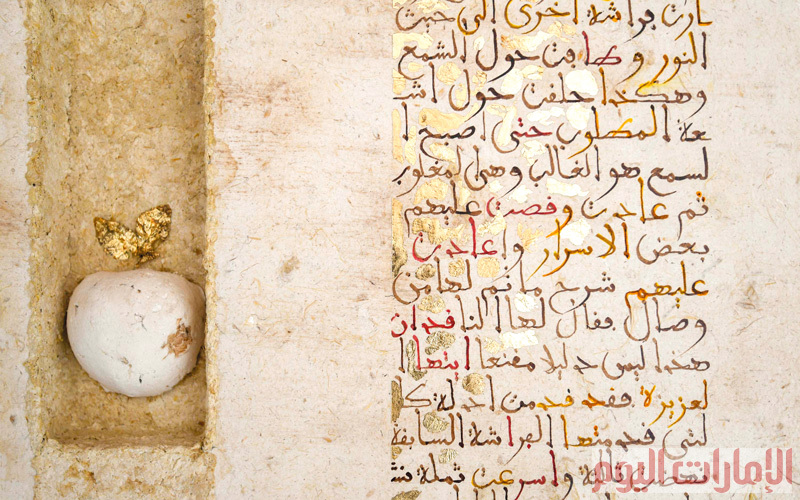 ارت فراشة اخرى الى حيث
النور وطافت حول الشمع
وهكذا حلقت حول اش
عة المطلوب حتى اصبح ا
لشمع هو الغالب وهي المغلوب
ثم عادت وقصت عليهم
بعض الاسرار واعادت
عليهم شرح ما تم لها من
وصال. فقال لها الناقدان
هذا ليس دليلا مقنعا ايتها ا
لعزيزة فقد قدمت ادلة كا
لتي قدمتها الفراشة السابقة
فنهضت ثالثة واسرعت ثملة
الإمارات اليوم